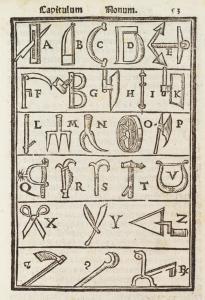 Capitulum Nonum. 53
A B C D E
F B G H I K
L M N O P
Q R S T V
X Y Z